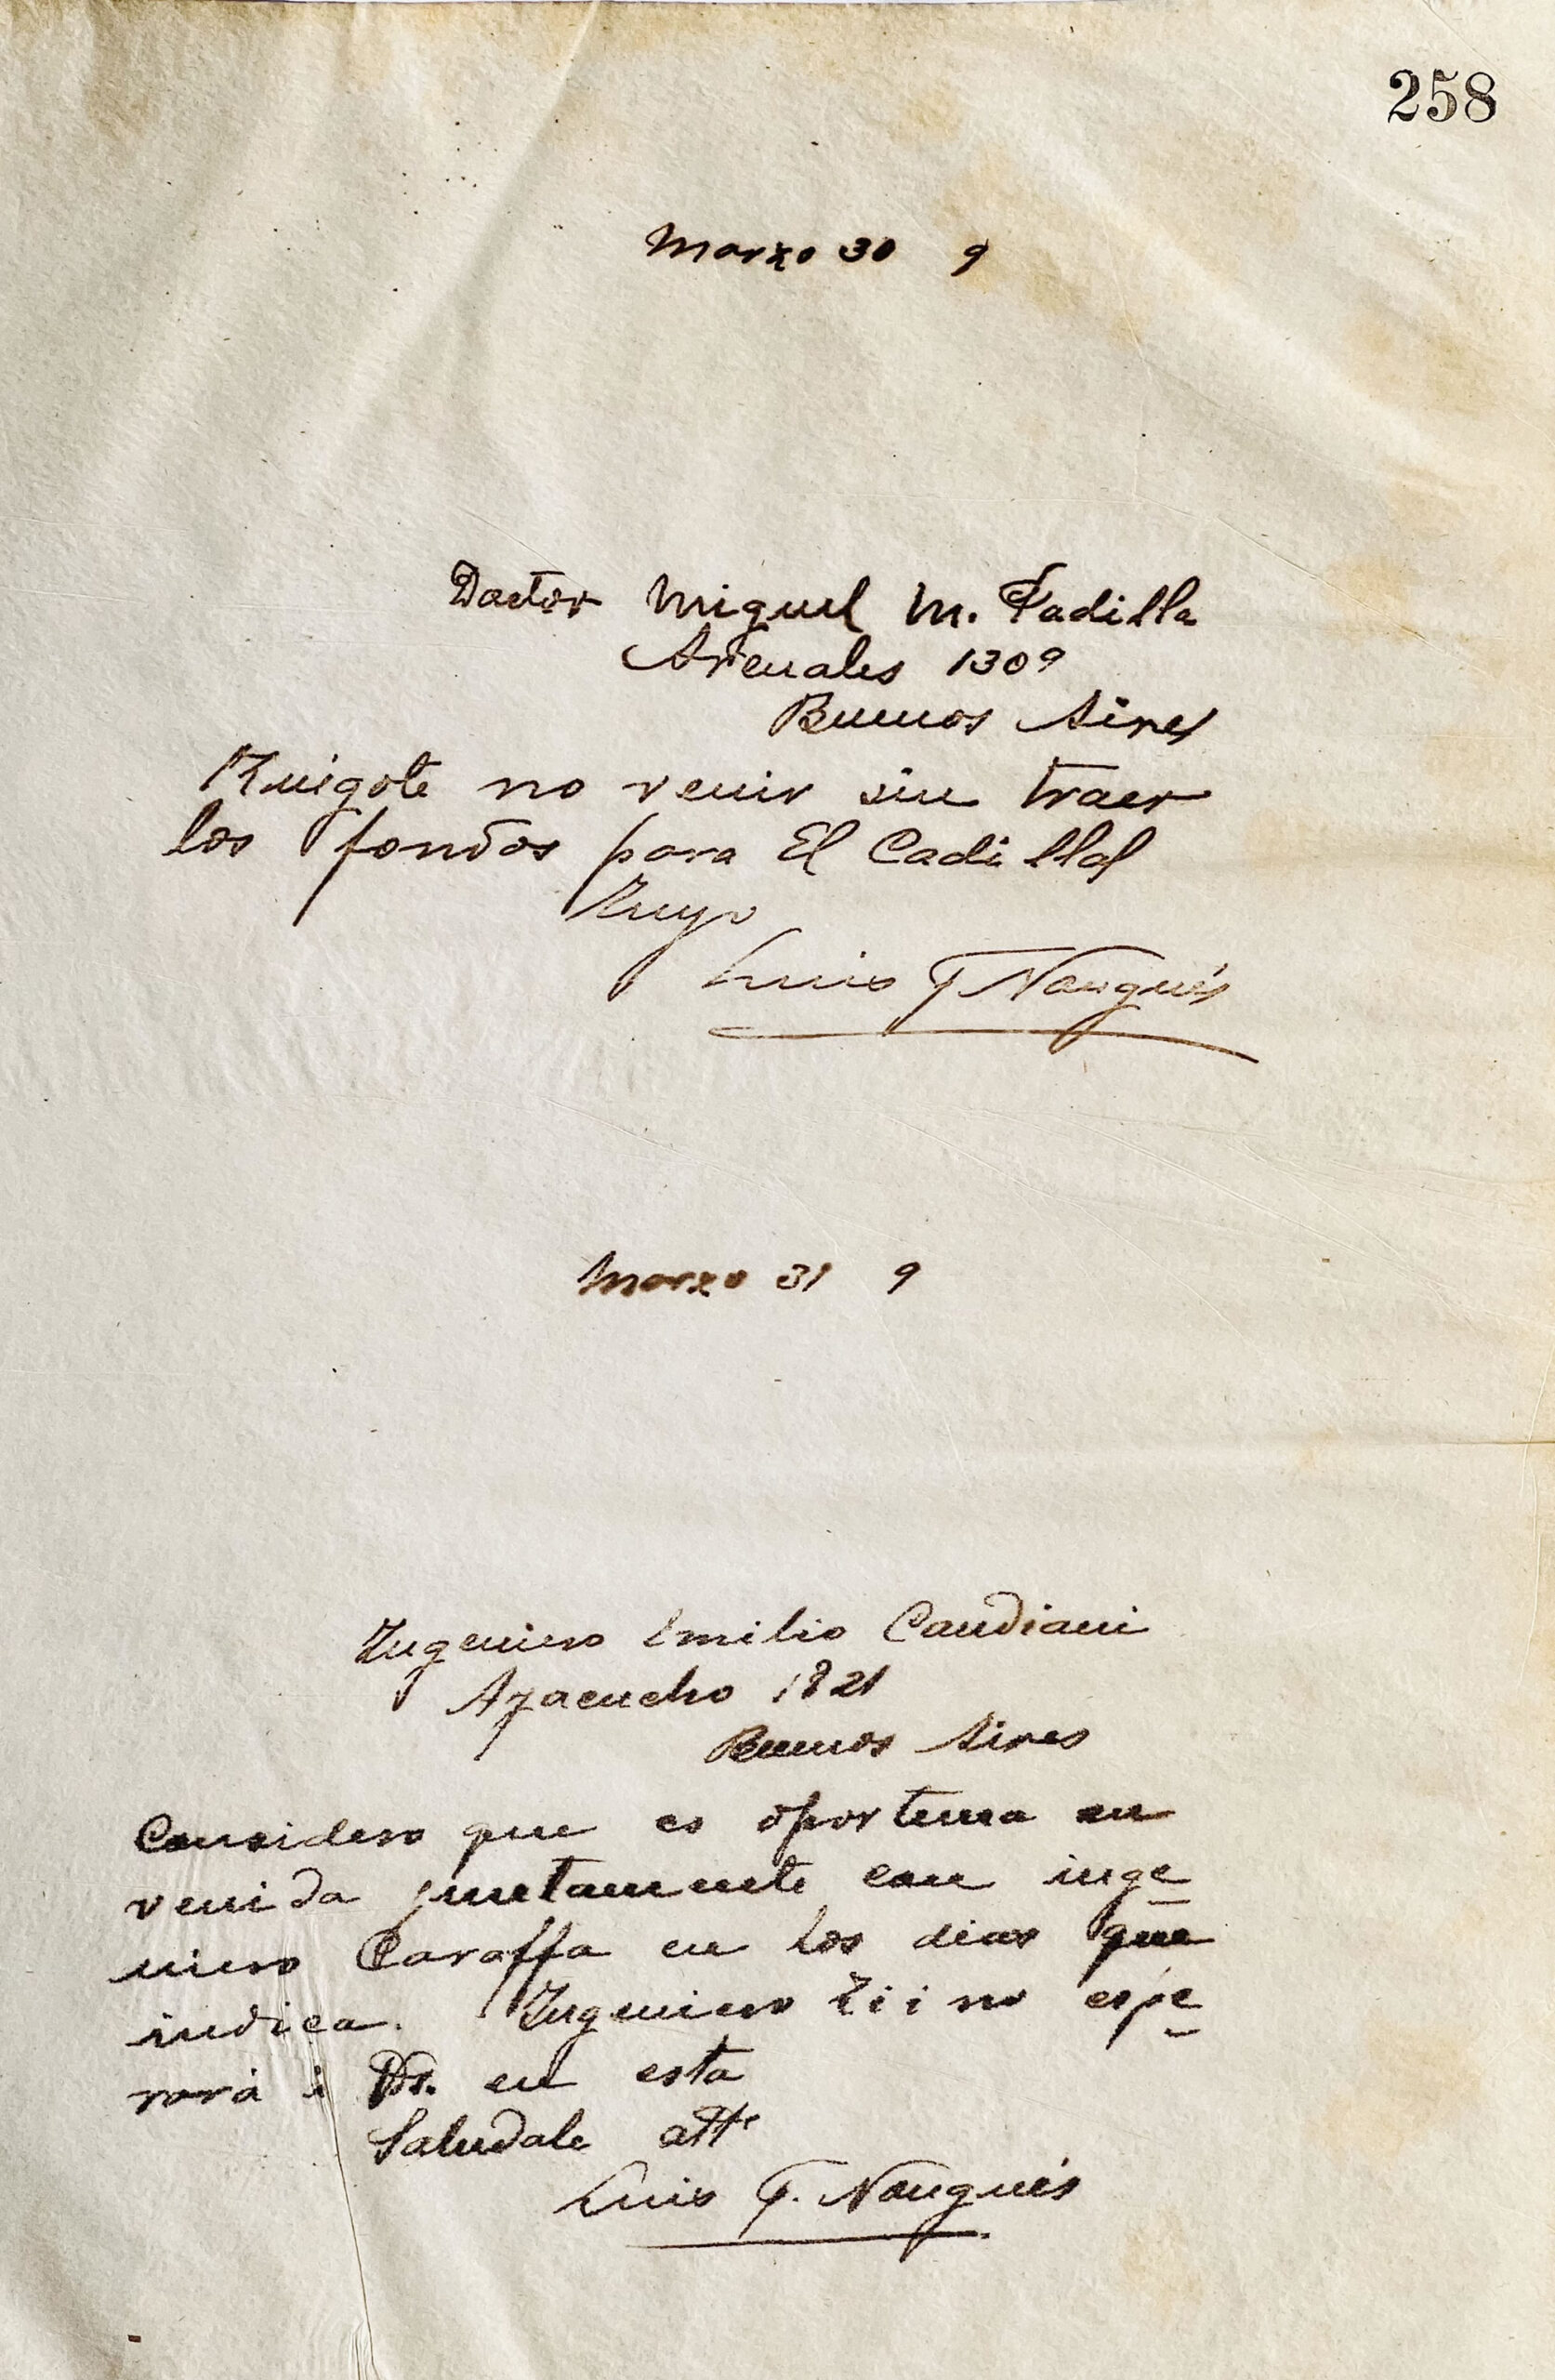 258
Marzo 30 9
Doctor Miguel M. Padilla
Arenales 1309
Buenos Aires
Ruégote no venir sin traer
los fondos para El Cadillal
Tuyo
Luis F Nougués
Marzo 31 9
Ingeniero Emilio Candiani
Ayacucho 1821
Buenos Aires
Considero que es oportuna su
venida juntamente con inge
niero Caraffa en los dias que
indica. Ingeniero no espe
rará á Vd. en esta
Saludale atte
Luis F. Nougués